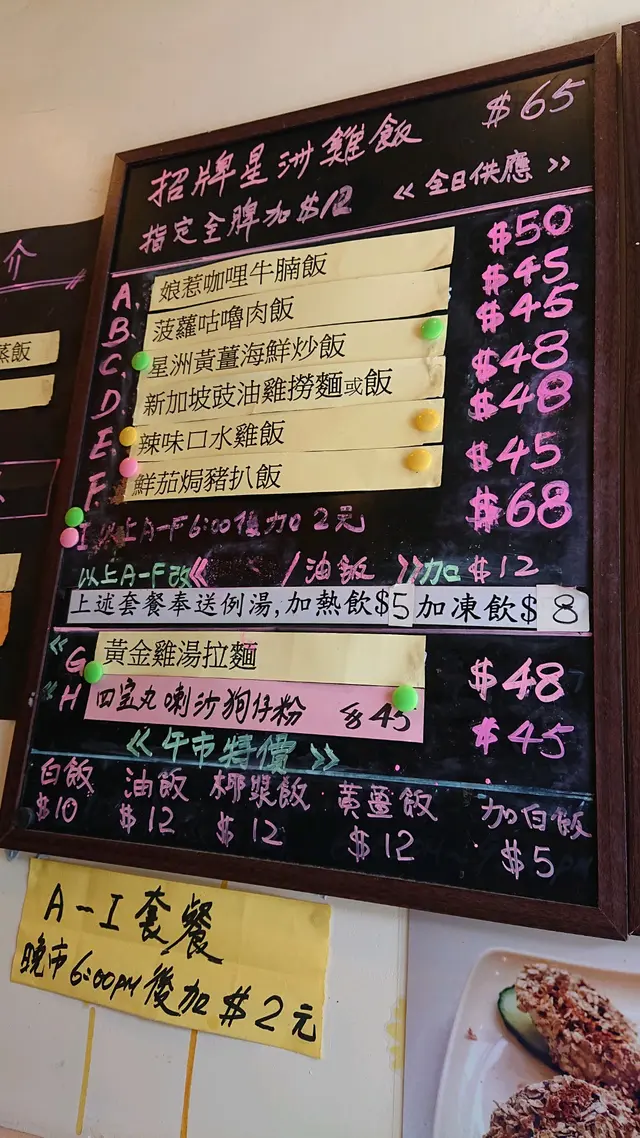 招牌星洲雞飯 $65
指定全牌加$12 << 全日供應 >>
$50
A. 娘惹咖哩牛腩飯 $45
B. 菠蘿咕嚕肉飯 $45
C. 星洲黃薑海鮮炒飯 $48
D. 新加坡豉油雞撈麵或飯 $48
E. 辣味口水雞飯 $45
F. 鮮茄焗豬扒飯 $68
I 以上A-F 6:00後加2元
以上A-F改<< /油飯 >>加 $12
上述套餐奉送例湯,加熱飲$5加凍飲$8
G 黃金雞湯拉麵 $48
H 四宝丸喇沙狗仔粉 $45 $45
<< 午市特價 >>
白飯 油飯 椰漿飯 黃薑飯 加白飯
$10 $12 $12 $12 $5
A-I 套餐
晚市6:00PM後加$2元
介
蒸飯